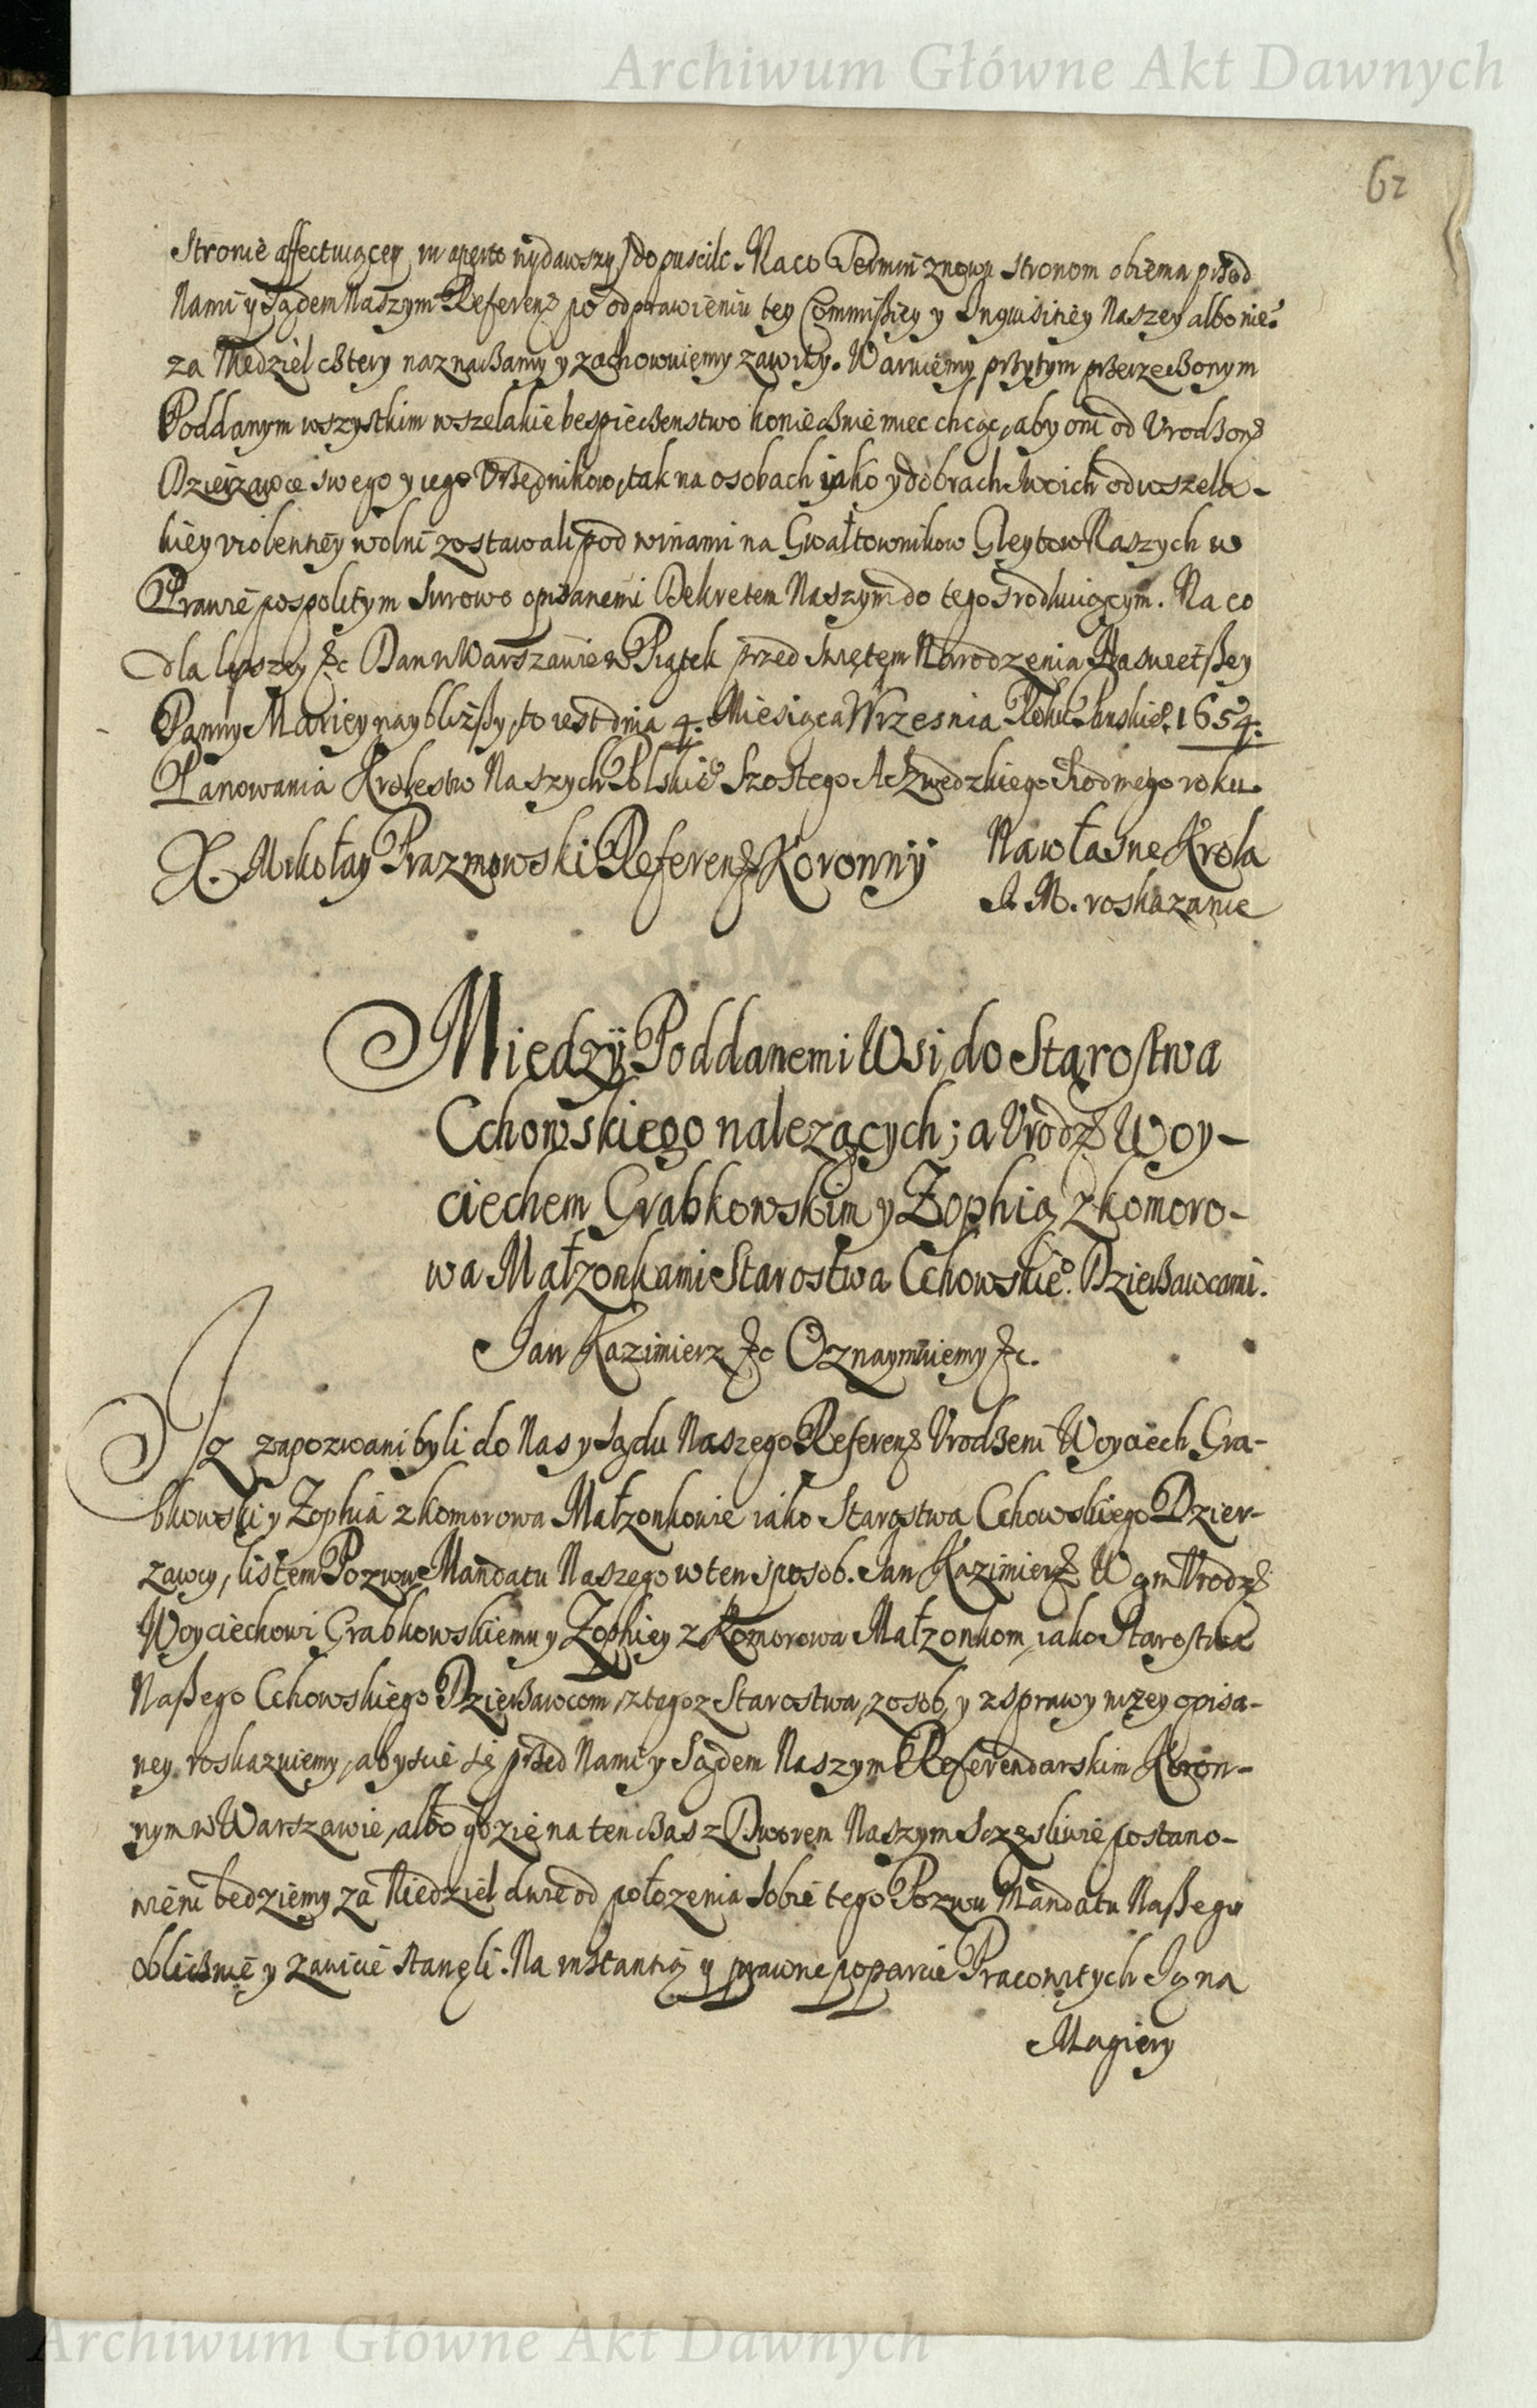 Archiwum Główne Akt Dawnych
62
Stronie affectuiącey in aperto wydawszy, dopuscile. Na co Termin znowu stronom obiema przed
Nami y Sądem Naszym Referenꝫ po odprawieniu tey Commissiey y Inquisitiey Naszey albo nieº
za Niedziel cztery naznaczamy y zachowuiemy zawity. Waruiemy przytym przerzeczonym
Poddanym wszystkim wszelakie bespieczenstwo koniecznie miec chcąc, aby oni od Vrodzonꝫ
Dzierzawce swego y iego Vrzędnikow, tak na osobach iako y dobrach swoich od wszela-
kiey violentiey wolni zostawali pod winami na Gwałtownikow Gleytow Naszych w
Prawie pospolitym surowo opisanemi Dekretem Naszym do tego srodkuiącym. Na co
dla lepszey &c Dan w Warszawie w Piątek przed Swiętem Narodzenia Naswietszey
Panny Mariey naybliższy, to iest dnia 4. Miesiąca Wrzesnia Roku Panskieº. 1654.
Panowania Krolestw Naszych Polskieº Szostego A Szwedzkiego Siodmego roku.
X. Mikołay Prazmowski Referenꝫ Koronny Na własne Krola
J. M. roskazanie
Między Poddanemi Wsi do Starostwa
Cchowskiego nalezących; a Vrodzꝫ Woy-
ciechem Grabkowskim y Zophią z komoro-
wa Małzonkami Starostwa Cchowskieº. Dzierzawcami.
Jan Kazimierz &c Oznaymuiemy &c.
Iz zapozwani byli do Nas y Sądu Naszego Referenꝫ Vrodzeni Woyciech Gra-
bkowski y Zophia z komorowa Małzonkowie iako Starostwa Cchowskiego Dzier-
zawcy, listem Pozwu Mandatu Naszego w ten sposob. Jan Kazimierꝫ Wam Vrodzꝫ
Woyciechowi Grabkowskiemu y Zophiey z Komorowa Małzonkom, iako Starostwa
Naszego Cchowskiego Dzierzawcom, z tegoz Starostwa, z osob, y z sprawy nizey opisa-
ney roskazuiemy, abyscie się przed Nami y Sądem Naszym Referendarskim Koron-
nym w Warszawie, albo gdzie na ten czas z Dworem Naszym sczęsliwie postano-
wieni bedziemy za Niedziel dwie od połozenia sobie tego Pozwu Mandatu Naszego
oblicznie y zawicie staneli. Na instantią y prawne poparcie Pracowitych Jana
Magiery
Archiwum Główne Akt Dawnych